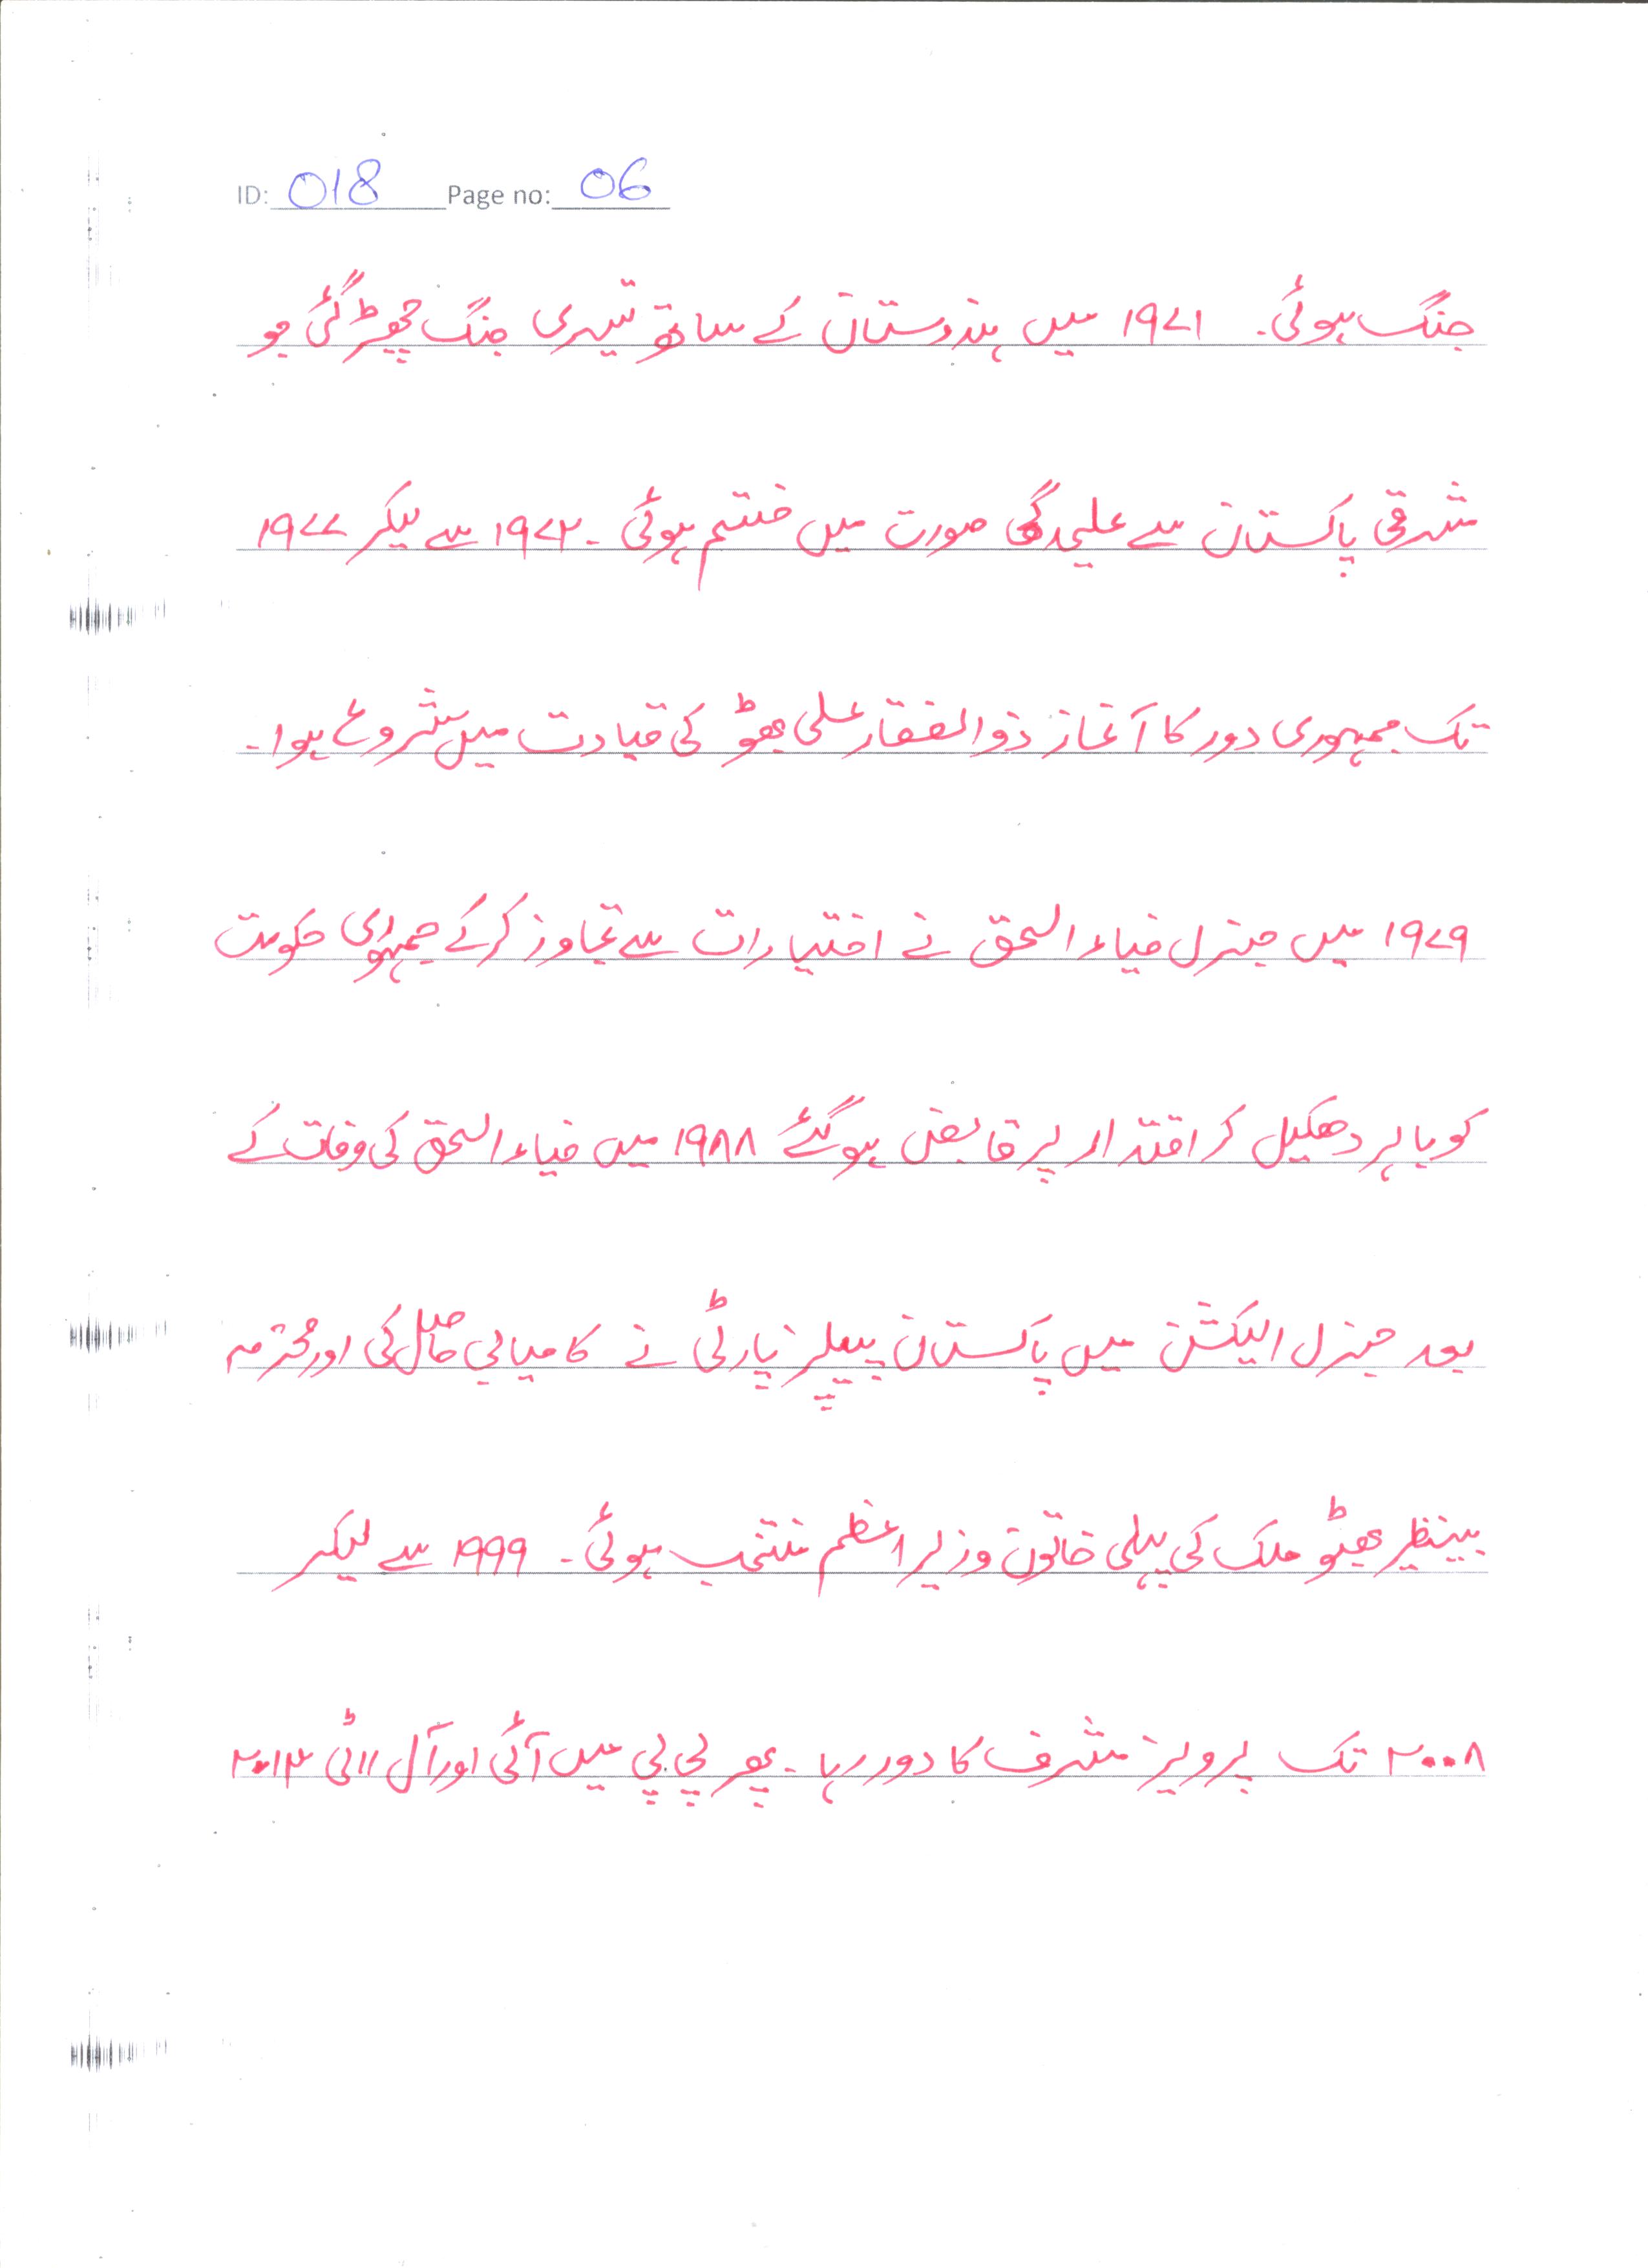 ID: 018 Page no: 06
جنگ ہوئی۔ ۱۹۷۱ میں ہندوستان کے ساتھ تیسری جنگ چھڑ گئی جو
مشرقی پاکستان سے علیحدگی صورت میں ختم ہوئی۔ ۱۹۷۲ سے لیکر ۱۹۷۷
تک جمہوری دور کا آغاز ذوالفقار علی بھٹو کی قیادت میں شروع ہوا۔
۱۹۷۹ میں جنرل ضیاء الحق نے اختیارات سے تجاوز کرکے جمہوری حکومت
کو باہر دھکیل کر اقتدار پر قابض ہوگئے ۱۹۸۸ میں ضیاء الحق کی وفات کے
بعد جنرل الیکشن میں پاکستان پیپلز پارٹی نے کامیابی حاصل کی اور محترمہ
بینظیر بھٹو ملک کی پہلی خاتون وزیر اعظم منتخب ہوئی۔ ۱۹۹۹ سے لیکر
۲۰۰۸ تک پرویز مشرف کا دور رہا۔ پھر پی پی میں آئی اور آل ۲۰۱۳